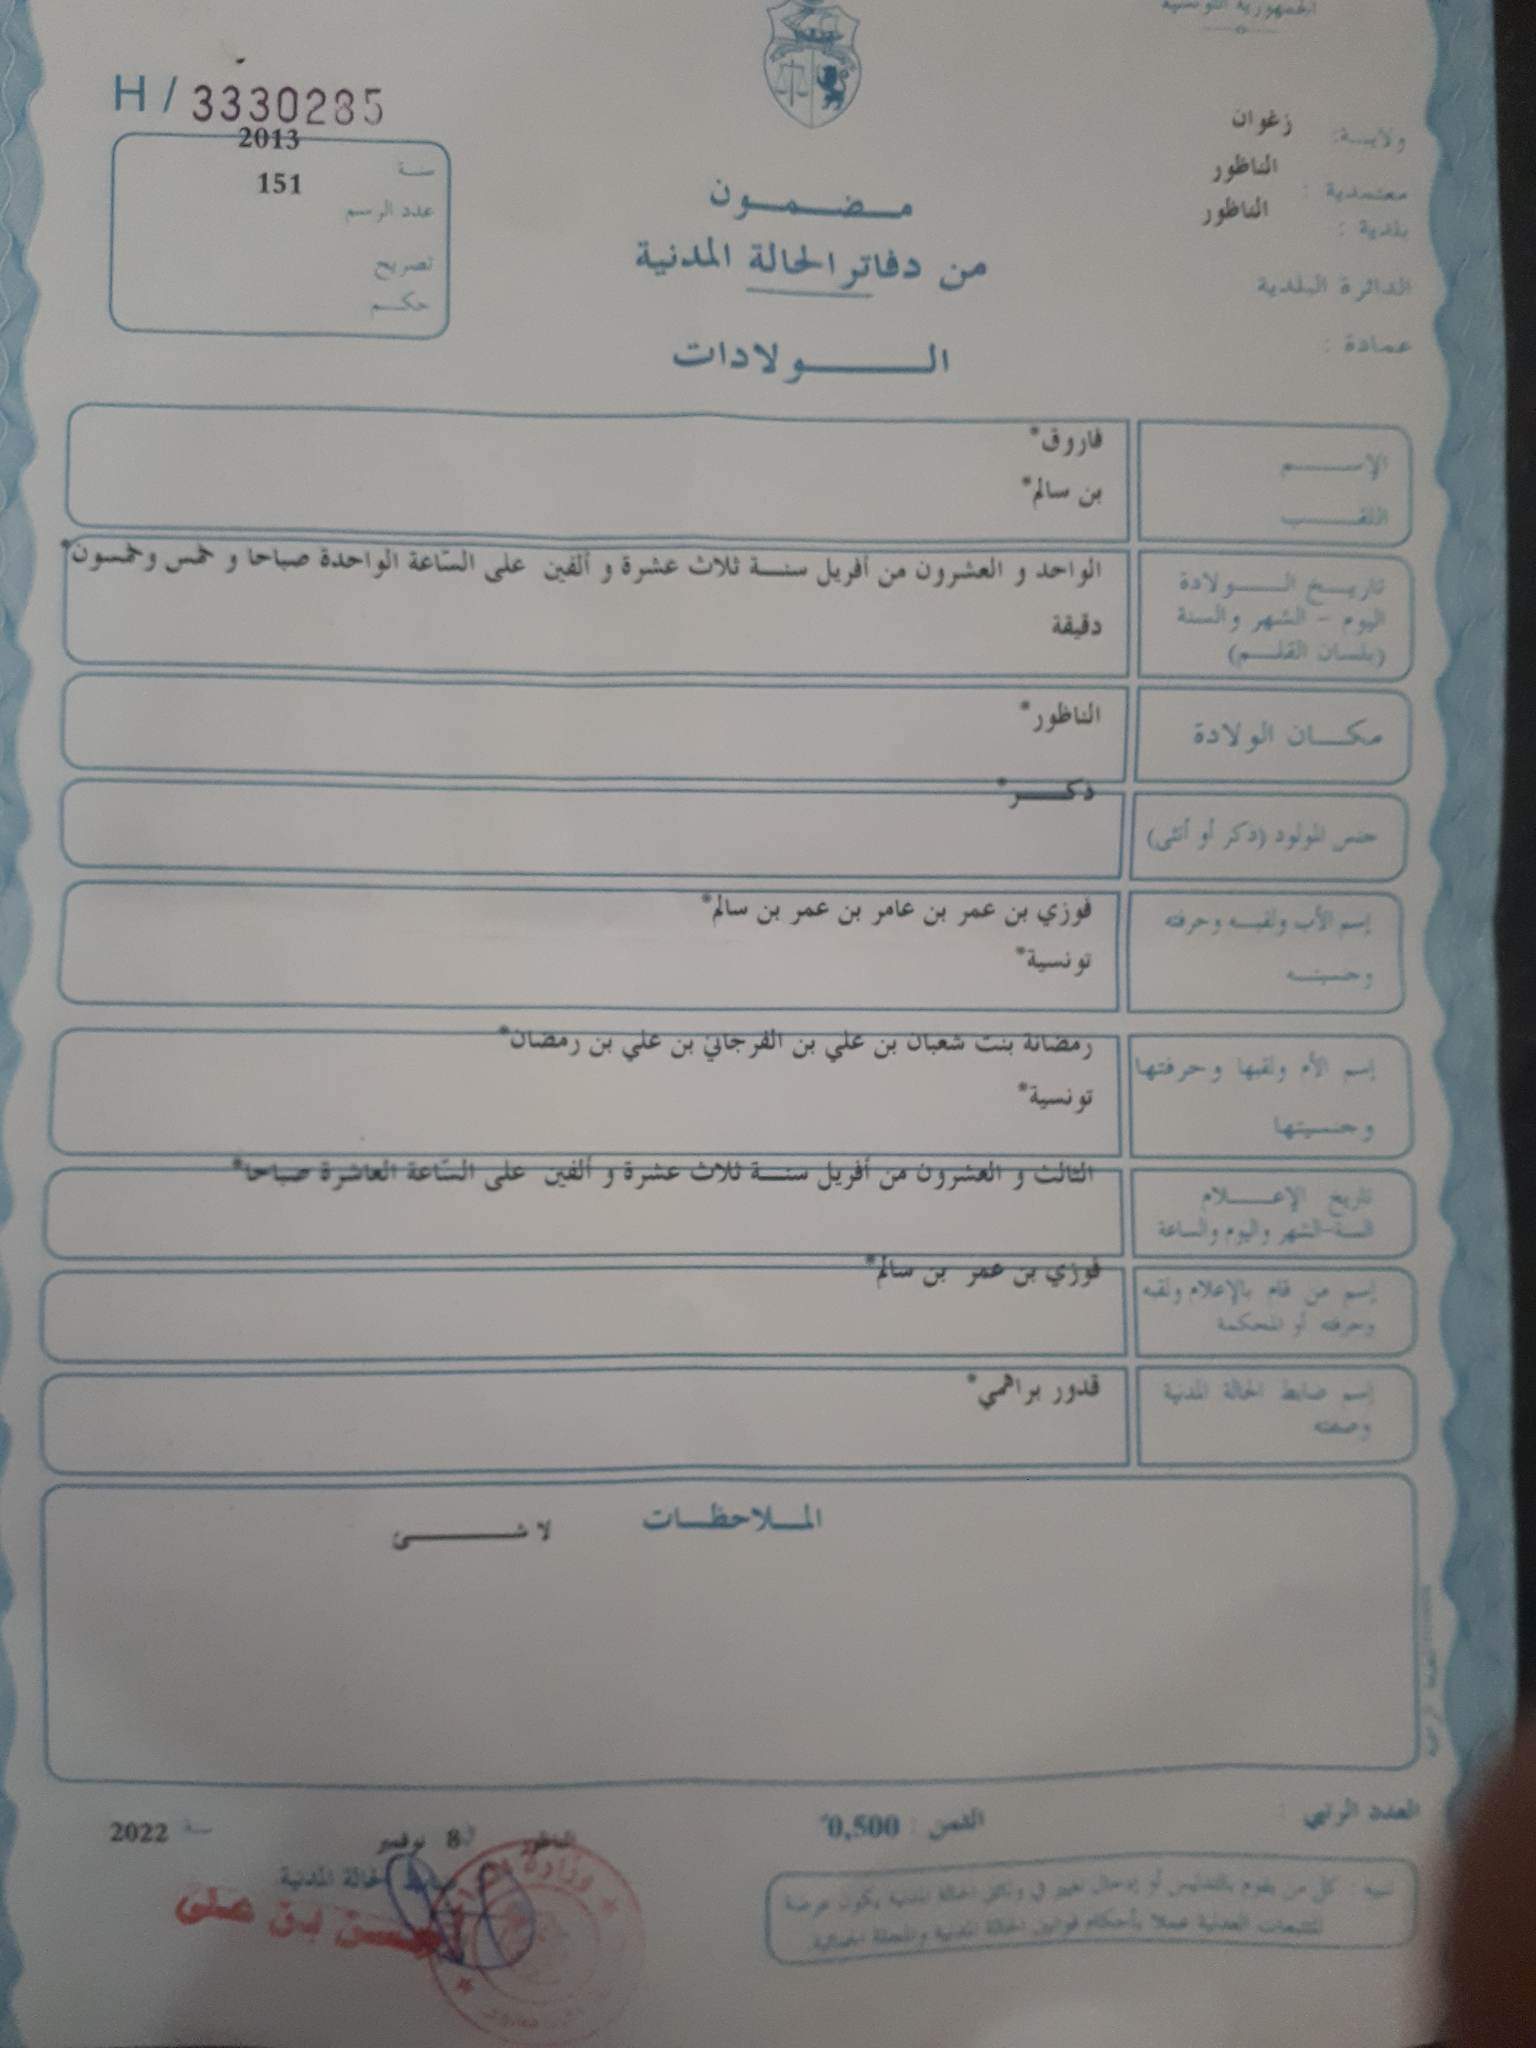 الجمهورية التونسية
H / 3330285
ولايـــة: زغوان
معتمدية : الناظور
بلدية : الناظور
الدائرة البلدية
عمادة :
سنـة 2013
عدد الرسم 151
تصريح
حكـم
مـــضـــمـــون
من دفاتر الحالة المدنية
الـــــولادات
الإســـــم فاروق*
اللقـــــب بن سالم*
تاريـــخ الـــــولادة الواحد و العشرون من أفريل سنـــة ثلاث عشرة و ألفين على السّاعة الواحدة صباحا و خمس وخمسون*
اليوم - الشهر والسنة دقيقة
(بلسان القلـــم)
مكـــان الولادة الناظور*
جنس المولود (ذكر أو أنثى) ذكـــــر*
إسم الأب ولقبـــه وحرفته فوزي بن عمر بن عامر بن عمر بن سالم*
وجنسيتـــه تونسية*
إسم الأم ولقبها وحرفتها رمضانة بنت شعبان بن علي بن الفرجاني بن علي بن رمضان*
وجنسيتها تونسية*
تاريخ الإعـــــلام الثالث و العشرون من أفريل سنـــة ثلاث عشرة و ألفين على السّاعة العاشرة صباحا*
السنة-الشهر واليوم والساعة
إسم من قام بالإعلام ولقبه فوزي بن عمر بن سالم*
وحرفته أو المحكمة
إسم ضابط الحالة المدنية قدور براهمي*
وصفته
المـــلاحظـــات لا شـــــــئ
العدد الرتبي : الثمن : 0,500
الناظور في 8 نوفمبر سنة 2022
ضابط الحالة المدنية
بن علي
تنبيه : كل من يقوم بالتدليس أو إدخال تغيير في وثائق الحالة المدنية يكون عرضة
للتتبعات العدلية عملا بأحكام قوانين الحالة المدنية والمجلة الجنائية